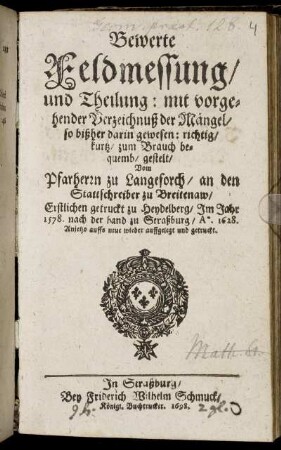 4
Bewerte
Feldmessung/
und Theilung: mit vorge-
hender Verzeichnuß der Mängel/
so bißher darin gewesen: richtig/
kurtz/ zum Brauch be-
quemb/ gestelt/
Vom
Pfarherrn zu Langeforch/ an den
Stattschreiber zu Breitenaw/
Erstlichen getruckt zu Heydelberg/ Im Jahr
1578. nach der hand zu Straßburg/ Aº. 1628.
Anietzo auffs neue wieder auffgelegt und getruckt.
Math.
In Straßburg/
Bey Friderich Wilhelm Schmuck/
Königl. Buchtrucker. 1698.